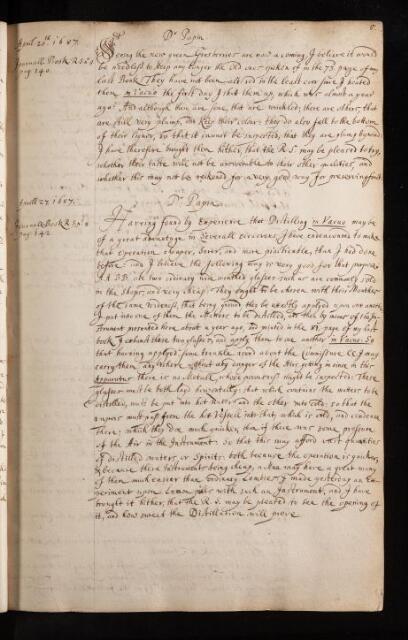 6.
Dr Papin
April 20th. 1687.
Journall Book R.S. n° 8
pag 140.
Seeing the new green Gooseberries are now a coming I believe it would
be needless to keep any longer the old ones spoken of in the 73 page of my
last Book. They have not been altered in the least ever since I heated
them in Vacuo the first day I shut them up, which is almost a year
ago: And although there are some, that are wrinkled; there are others, that
are still very plump, and keep their colour: they do also fall to the bottom
of their liquor, so that it cannot be suspected, that they are plump by wind.
I have therefore brought them hither, that the R.S. may be pleased to try,
whether their taste will not be answerable to their other qualities, and
whether this may not be reckoned for a very good way for preserving fruit.
Dr. Papin.
April 27. 1687.
Journall Book R.S. n° 8
pag 142.
Having found by Experience that Distilling in Vacuo may be
of a great advantage in severall occasions, I have endeavoured to make
that operation cheaper, surer, and more practicable, than I had done
before: and I believe the following way is very good for that purpose.
A A B B are two ordinary wide mouthed glasses such as are commonly sold
in the shops, and very cheap: They ought to be chosen with their Mouthes
of the same wideness, that being ground they be exactly applyed upon one another
I put into one of them the Matter to be distilled, and then by means of the In-
strument presented here about a year ago, and printed in the 81 page of my last
book I exhaust those two glasses, and apply them to one another in Vacuo. So
that having applyed some cement round about the Commissure CC I may
carry them any where without any danger of the Air getting in: and in this
Apparatus there is no where, whose soundness might be suspected. These
glasses must be both laid horizontally: that which contains the matter to be
distilled, must be put into hot Water, and the other into cold: so that the
vapours must pass from the hot Vessell into that, which is cold, and condense
there; which they doe much quicker, than if there was some pressure
of the Air in the Instrument: so that this may afford vast quantities
of distilled waters, or Spirits; both because the operation is quicker,
& because these Instruments being cheap, a Man may have a great many
of them much easier than ordinary Limbecs. I made yesterday an Ex-
periment upon Lemon peels with such an Instrument, and I have
brought it hither, that the R.S. may be pleased to see the opening of
it, and how sweet the Distillation will prove.